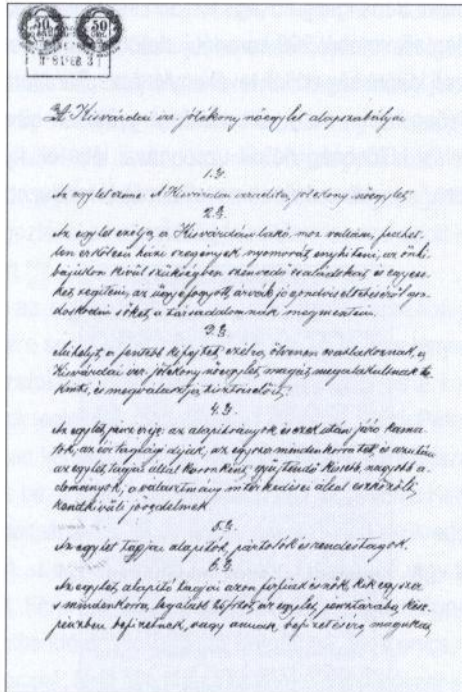 50 50
81 FEB 3
A Kisvárdai izr. jótékony nőegylet alapszabályai
1. §.
Az egylet címe: A Kisvárdai izraelita jótékony nőegylet.
2. §.
Az egylet czélja, a Kisvárdán lakó moz. vallású, fedhet-
len erkölcsű házi szegények nyomorát enyhíteni, az önhi-
bájukon kívül szükségben szenvedő családokat és egyese-
ket segíteni, az ügyefogyott árvák jó gondviseltetéséről gon-
doskodni s őket a társadalomnak megmenteni.
3. §.
Mihelyt a fentebb kifejtett czélra, ötvenen csatlakoznak, a
Kisvárdai izr. jótékony nőegylet magát megalakultnak te-
kinti, és megválasztja tisztviselőit.
4. §.
Az egylet pénzereje: az alapítványok és ezek után járó kama-
tok, az évi tagsági díjak, az egyszer mindenkorra tett, és azután
az egylet tagjai által koronként gyűjtendő kisebb, nagyobb a-
dományok, a választmány intézkedései által eszközölt
rendkívüli jövedelmek.
5. §.
Az egylet tagjai alapítók, pártolók és rendes tagok.
6. §.
Az egylet alapító tagjai azon férfiak és nők, kik egyszer
s mindenkorra, legalább frtot, az egylet pénztárába kész-
pénzben befizetnek, vagy annak befizetésére magukat